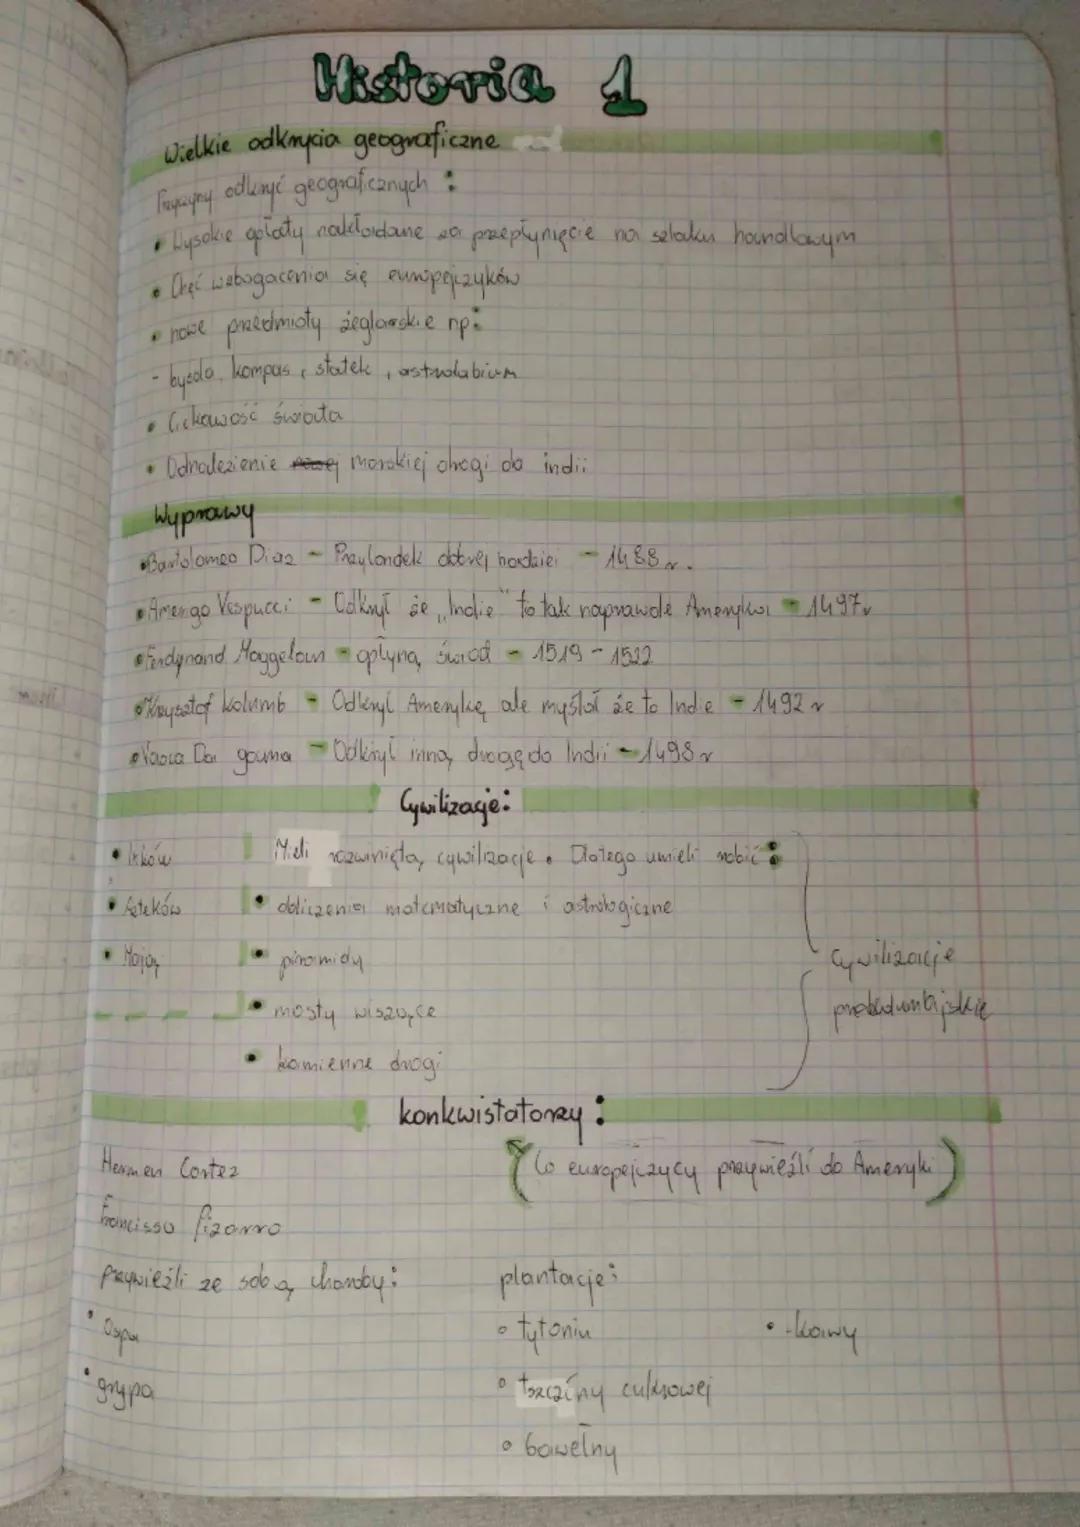 Historia 1
Wielkie odkrycia geograficzne
Przyczyny odkryć geograficznych :
• Wysokie opłaty nakładane za przepłynięcie na szlaku handlowym
• Chęć wzbogacenia się europejczyków
• nowe przedmioty żeglarskie np:
- busola, kompas, statek, astrolabium
• Ciekawość świata
• Odnalezienie nowej morskiej drogi do indii
Wyprawy
• Bartolomeo Diaz - Przylondek dobrej nadziei - 1488 r.
• Amerigo Vespucci - Odkrył że "Indie" to tak naprawdę Ameryka - 1497r
• Ferdynand Maggelan - opłyną świad - 1519 - 1522
• Krzysztof kolumb - Odkrył Amerykę ale myślał że to Indie - 1492 r
• Vasca Da gama - Odkrył inną drogę do Indii - 1498 r
Cywilizacje:
• Inków
Mieli rozwiniętą cywilizacje. Dlatego umieli robić:
• Azteków
• obliczenia matematyczne i astrologiczne
• Mają
• piramidy
• mosty wiszące
• kamienne drogi
cywilizacje
prekolumbijskie
konkwistatorzy :
Hermen Cortez
(Co europejczycy przywieźli do Ameryki)
Francisso Pizarro
przywieźli ze sobą choroby:
• Ospa
• grypa
plantacje:
• tytoniu
• kawy
• tszciny cukrowej
• bawełny